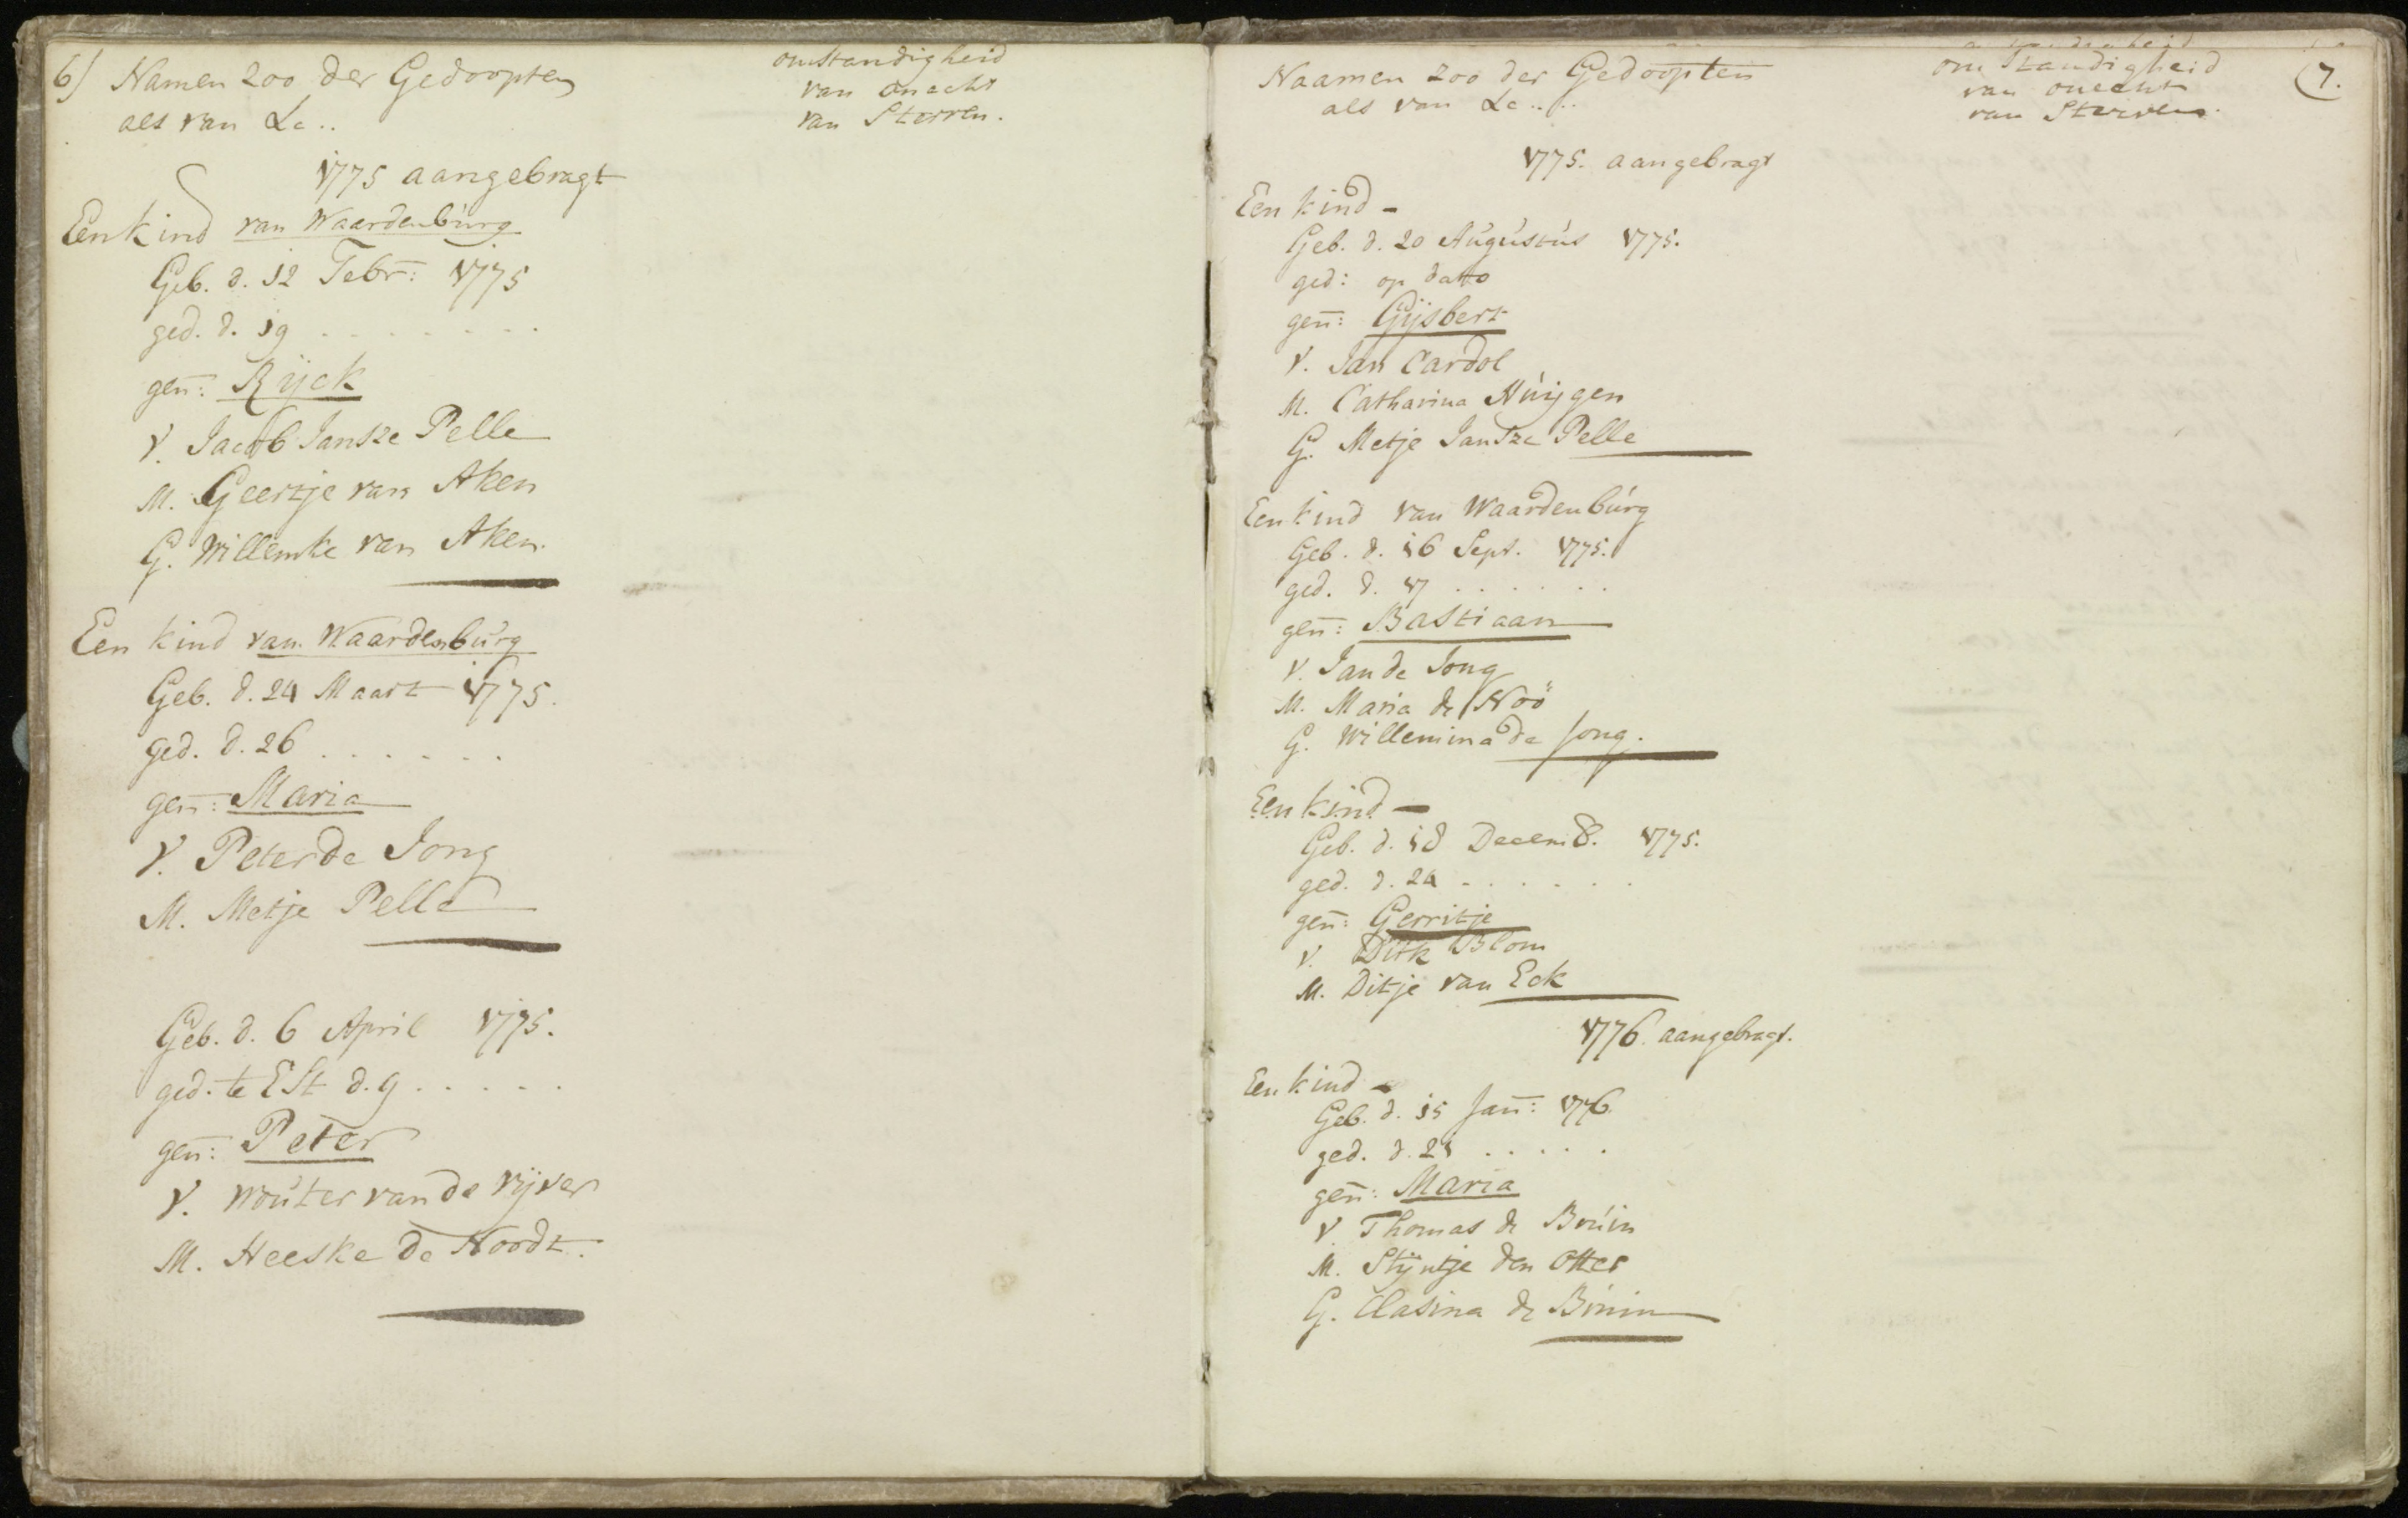 6) Namen zoo der Gedoopten
als van &c..
omstandigheid
van onecht
van Sterven.
1775 aangebragt
Een kind van Waardenburg
Geb. d. 12 Febr: 1775
ged. d. 19 . . . . . . . .
gen: Rijck
V. Jacob Jansze Pelle
M. Geertje van Aken
G. Willemke van Aken.
Een kind van Waardenburg
Geb. d. 24 Maart 1775.
ged. d. 26 . . . . . .
gen: Maria
V. Peter de Jong
M. Metje Pelle
Geb. d. 6 April 1775.
ged. te Est d. 9 . . . . .
gen: Peter
V. Wouter van de Vijver
M. Heeske de Nordt.
Naamen zoo der Gedoopten
als van &c....
omstandigheid
van onecht
van Sterven.
(7.
1775. aangebragt
Een kind -
Geb. d. 20 Augustus 1775.
ged: op dato
gen: Gijsbert
V. Jan Cardol
M. Catharina Huijgen
G. Metje Jantze Pelle
Een kind van Waardenburg
Geb. d. 16 Sept. 1775.
ged. d. 17 . . . . . .
gen: Bastiaan
V. Jan de Jong
M. Maria de Noö
G. Willemina de Jong.
Een kind -
Geb. d. 18 Decemb. 1775.
ged. d. 24 . . . . . .
gen: Gerritje
V. Dirk Blom
M. Ditje van Eck
1776. aangebragt.
Een kind -
Geb. d. 15 Jan: 1776.
ged. d. 21 . . . . .
gen: Maria
V. Thomas de Bruin
M. Stijntje den Otter
G. Clasina de Bruin